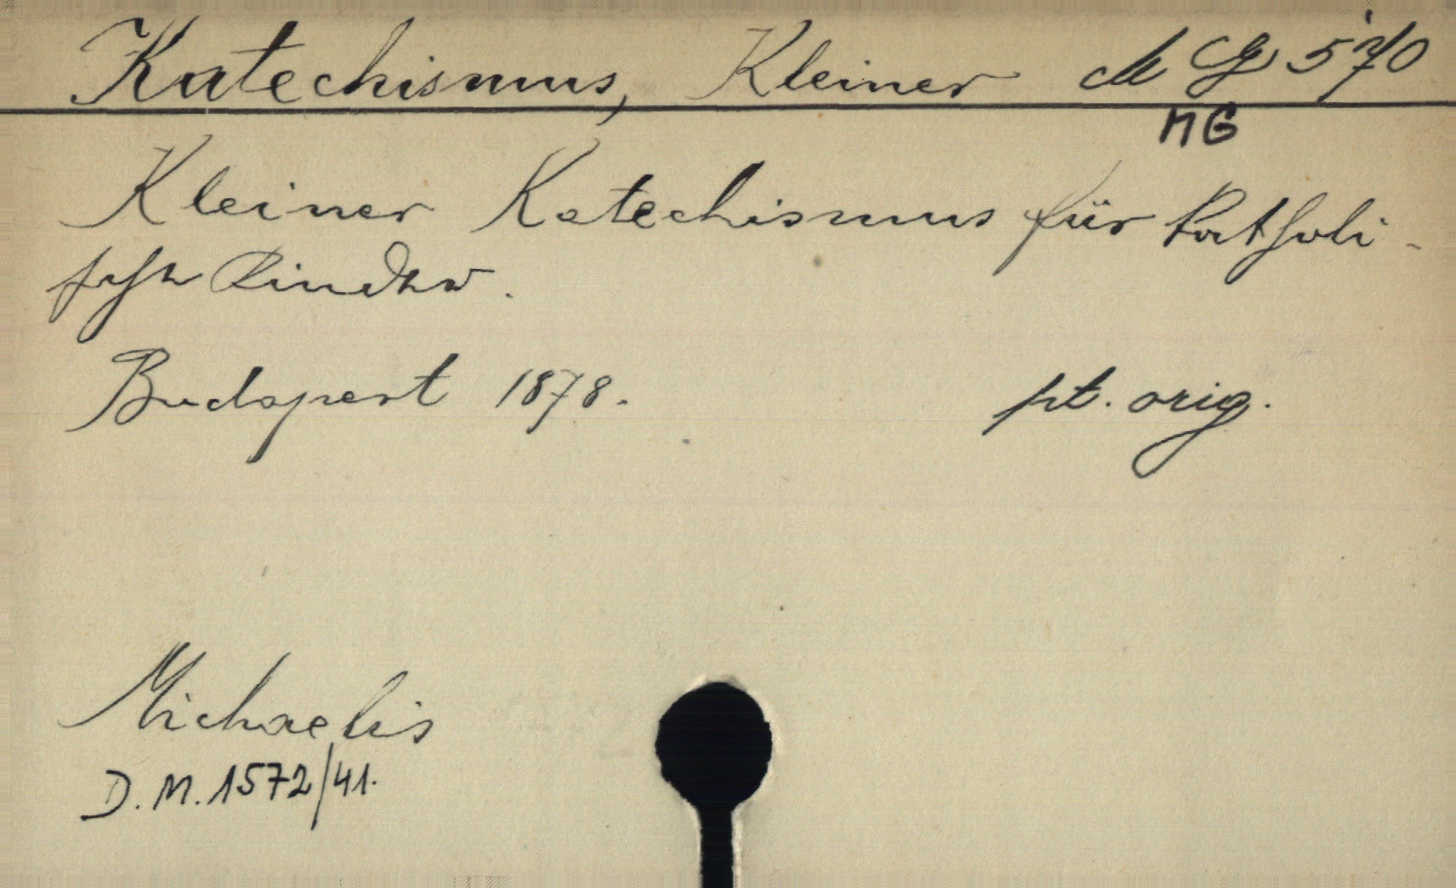 Katechismus, Kleiner M G 570
MG
Kleiner Katechismus für kathol-
ische Kinder.
Budapest 1878. pt. orig.
Michaelis
D.M. 1572/41.